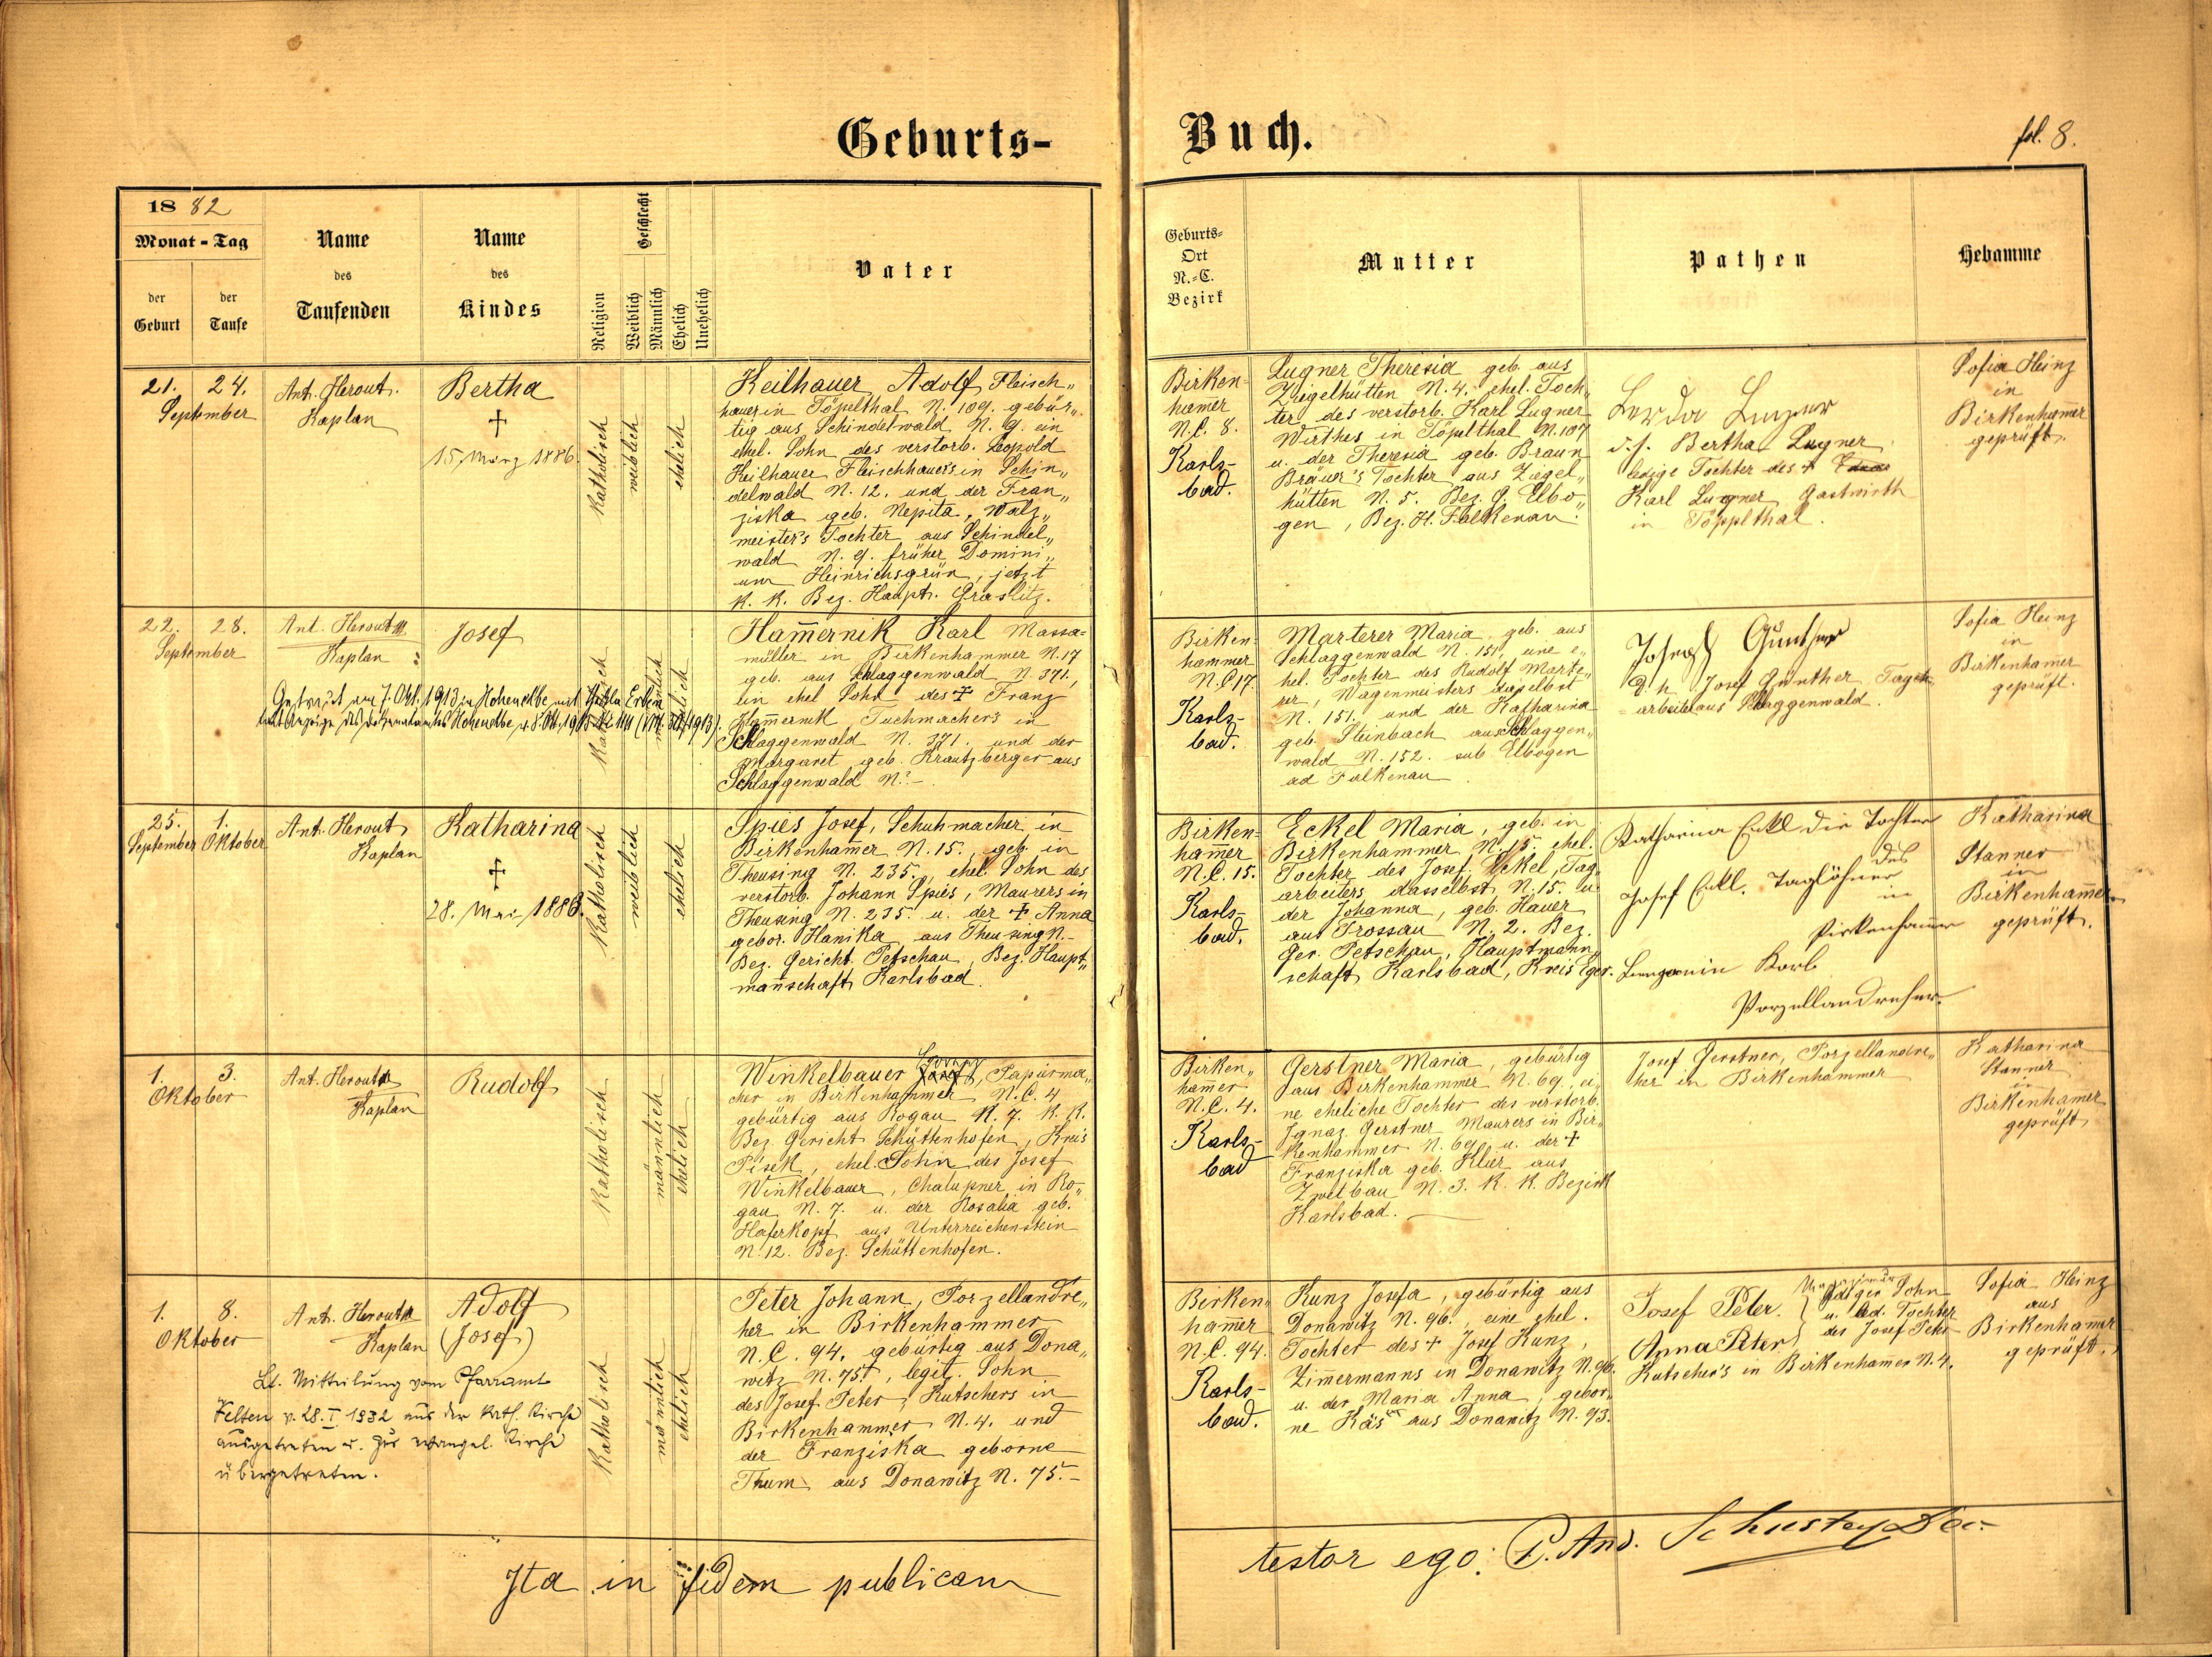 Geburts-
Buch.
fol. 8.
1882
Monat-Tag
der Geburt
der Taufe
Name des Taufenden
Name des Kindes
Religion
Geschlecht
Weiblich
Männlich
Ehelich
Unehelich
Vater
Geburts-
Ort
N.-C.
Bezirk
Mutter
Pathen
Hebamme
21. 24.
September
Ant. Herout.
Kaplan
Bertha
+
15. März 1886.
Katholisch
weiblich
ehelich
Keilhauer Adolf, Fleisch„
hauer in Töpelthal N. 109. gebür„
tig aus Schindelwald N. 9. ein
ehel. Sohn des verstorb. Leopold
Keilhauer Fleischhauer's in Schin„
delwald N. 12. und der Fran„
ziska geb. Nepita, Walz„
meister's Tochter aus Schindel„
wald N. 9. früher Domini„
um Heinrichsgrün, jetzt
K. K. Bez. Hauptm. Graslitz.
Birken-
ham̅er
N.C. 8.
Karls-
bad.
Lugner Theresia geb. aus
Ziegelhütten N. 4. ehel. Toch„
ter des verstorb. Karl Lugner
Wirthes in Töpelthal N. 107
u. der Theresia geb. Braun
Bräuer's Tochter aus Ziegel„
hütten N. 5. Bez. G. Elbo„
gen, Bez. H. Falkenau.
Lugner
d. h. Bertha Lugner
ledige Tochter des +
Karl Lugner Gastwirth
in Töpplthal.
Sofia Heinz
in
Birkenham̅er
geprüft.
22. 28.
September
Ant. Herout
Kaplan
Josef
Getraut am 7. Okt. 1913 in Hohenelbe mit
Hohenelbe
Katholisch
männlich
ehelich
Ham̅ernik Karl Massa=
müller in Birkenhammer N. 17
geb. aus Schlaggenwald N. 371.,
ein ehel Sohn des + Franz
Ham̅ernik Tuchmacher's in
Schlaggenwald N. 371. und der
Margaret geb. Krautzberger aus
Schlaggenwald N.? -
Birken-
hammer
N.C 17.
Karls-
bad.
Marterer Maria, geb. aus
Schlaggenwald N. 151, eine e„
hel. Tochter des Rudolf Marte„
rer, Wagenmeisters daselbst
N. 151. und der Katharina
geb. Steinbach aus Schlaggen„
wald N. 152. sub Elbogen
ad Falkenau
Joseph Günther
d. h. Josef Günther Tag-
arbeiter aus Schlaggenwald.
Sofia Heinz
in
Birkenham̅er
geprüft.
25. 1.
September Oktober
Ant. Herout
Kaplan
Katharina
+
28. Mai 1886.
Katholisch
weiblich
ehelich
Spies Josef, Schuhmacher in
Birkenham̅er N. 15., geb. in
Theusing N. 235., ehel. Sohn des
verstorb. Johann Spies, Maurers in
Theusing N. 235. u. der + Anna
gebor. Hanika aus Theusing N.-
Bez. Gericht Petschau, Bez. Haupt„
man̅schaft Karlsbad.
Birken-
ham̅er
N.C. 15.
Karls-
bad.
Eckel Maria, geb. in
Birkenhammer N. 15. ehel.
Tochter des Josef Eckel, Tag„
arbeiters dasselbst N. 15. u.
der Johanna, geb. Hauer
aus Trossau N. 2. Bez.
Ger. Petschau, Hauptmann„
schaft Karlsbad, Kreis Eger.
Katharina Eckl die Tochter
des
Josef Eckl. Taglöhner
in
Pirkenhammer
Karl
Porzellandreher
Katharina
Stanner
in
Birkenham̅er
geprüft.
1. 3.
Oktober
Ant. Herout
Kaplan
Rudolf
Katholisch
männlich
ehelich
Winkelbauer Josef, Papirma„
cher in Birkenhammer N.C. 4
gebürtig aus Rogau N. 7. K. K.
Bez. Gericht Schüttenhofen, Kreis
Pisek, ehel. Sohn des Josef
Winkelbauer, Chalupner in Ro„
gau N. 7. u. der Rosalia geb.
Haferkopf aus Unterreichenstein
N. 12. Bez. Schüttenhofen.
Birken„
ham̅er
N.C. 4.
Karls-
bad
Gerstner Maria, gebürtig
aus Birkenhammer N. 69., ei„
ne eheliche Tochter des verstorb.
Ignaz Gerstner Maurers in Bir„
kenhammer N. 69. u. der +
Franziska geb. Klier aus
Zwetbau N. 3. K. K. Bezirk
Karlsbad.
Josef Gerstner, Porzellandre„
her in Birkenhammer
Katharina
Stanner
in
Birkenham̅er
geprüft
1. 8.
Oktober
Ant. Herout
Kaplan
Adolf
(Josef)
Lt. Mitteilung vom Pfarramt
Velten v. 28. I 1932 aus der kath. Kirche
ausgetreten u. zur evangel. Kirche
übergetreten.
Katholisch
männlich
ehelich
Peter Johann, Porzellandre„
her in Birkenhammer
N.C. 94. gebürtig aus Dona„
witz N. 75., legit. Sohn
des Josef Peter, Kutschers in
Birkenhammer N. 4. und
der Franziska geborne
Thum aus Donawitz N. 75.-
Birken„
ham̅er
N.C. 94.
Karls-
bad.
Kunz Josefa, gebürtig aus
Donawitz N. 96., eine ehel.
Tochter des + Josef Kunz,
Zim̅ermanns in Donawitz N. 96.
u. der Maria Anna, gebor„
ne Käs aus Donawitz N. 93.
Josef Peter lediger Sohn
u. led. Tochter
Anna Peter des Josef Peter
Kutscher's in Birkenham̅er N. 4.
Sofia Heinz
aus
Birkenham̅er
geprüft.
Ita in fidem publicam
testor ego: P. And. Schuster Dec.